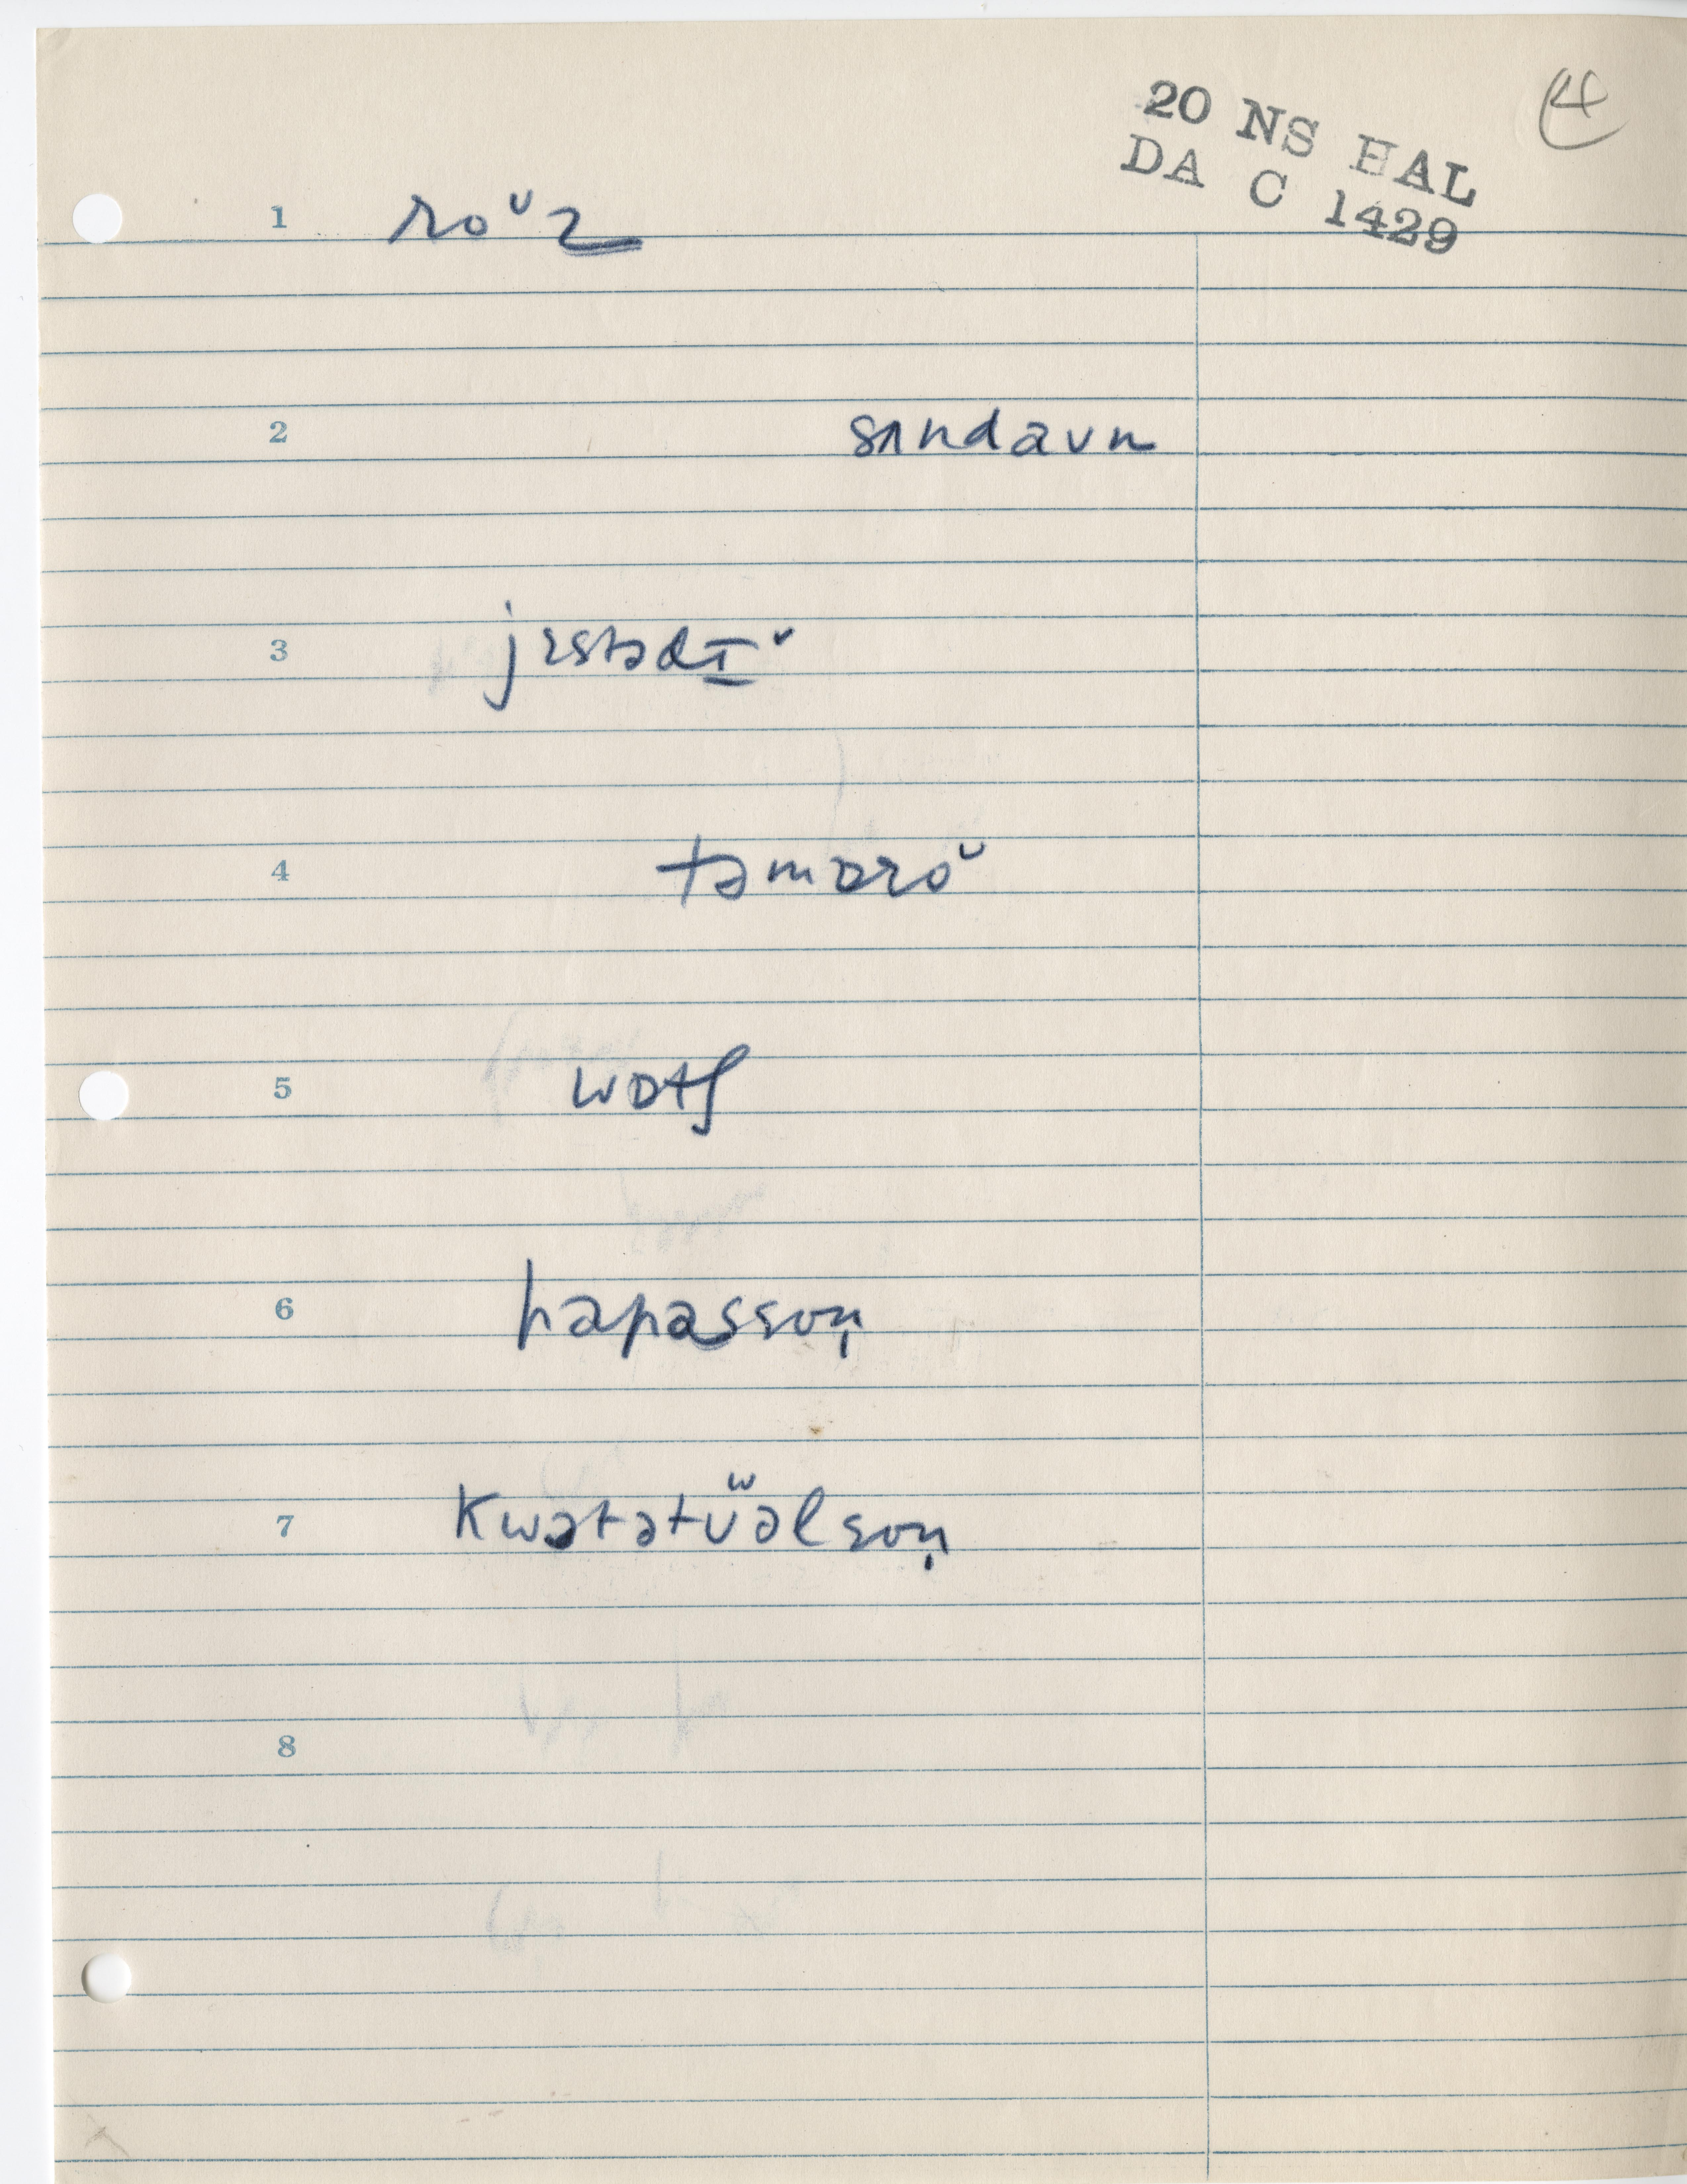 20 NS HAL
DA C 1429
4
1 roᵘz
2 sʌndaun
3 jɛstədɪˇ
4 təmɒroᵘ
5 wɒtʃ
6 hapəssoṇ
7 Kwətətüəlsoṇ
8